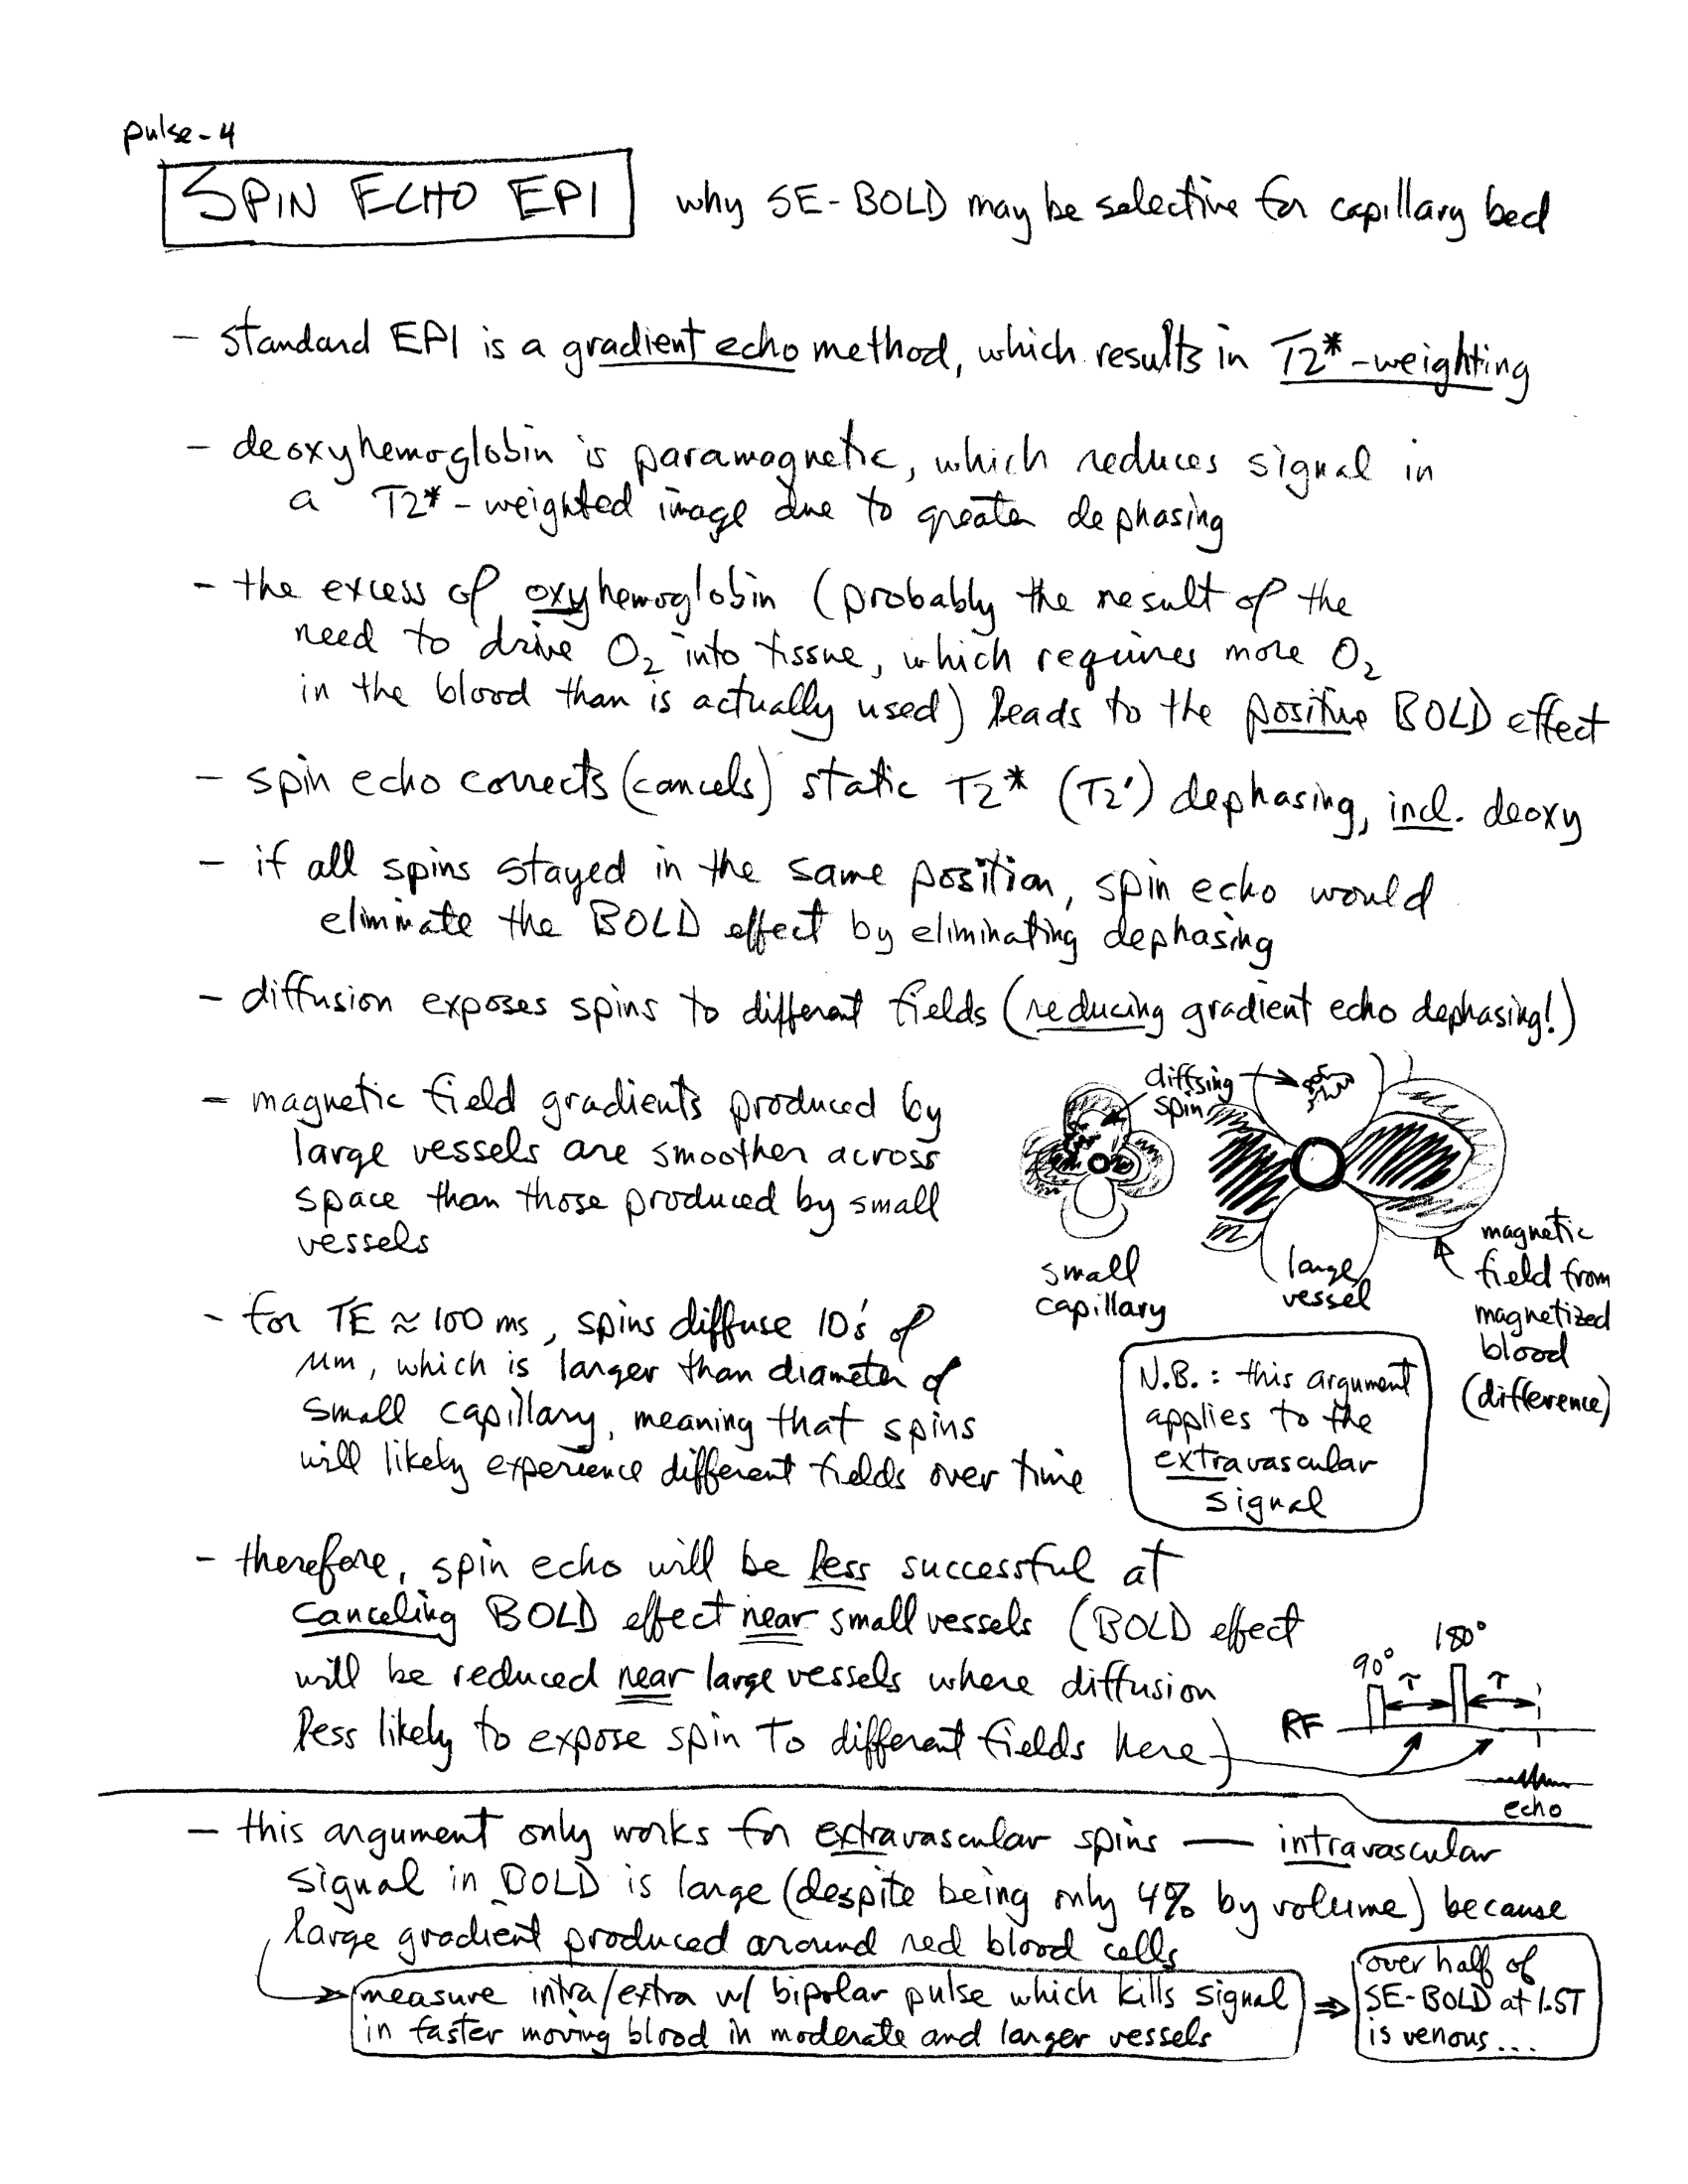 pulse-4
SPIN ECHO EPI why SE-BOLD may be selective for capillary bed
- standard EPI is a gradient echo method, which results in T2*-weighting
- deoxyhemoglobin is paramagnetic, which reduces signal in
a T2*-weighted image due to greater dephasing
- the excess of oxyhemoglobin (probably the result of the
need to drive O2 into tissue, which requires more O2
in the blood than is actually used) leads to the positive BOLD effect
- spin echo corrects (cancels) static T2* (T2') dephasing, incl. deoxy
- if all spins stayed in the same position, spin echo would
eliminate the BOLD effect by eliminating dephasing
- diffusion exposes spins to different fields (reducing gradient echo dephasing!)
- magnetic field gradients produced by
large vessels are smoother across
space than those produced by small
vessels
diffsing
spin
small
capillary
large
vessel
magnetic
field from
magnetized
blood
(difference)
- for TE ≈ 100 ms, spins diffuse 10's of
µm, which is larger than diameter of
small capillary, meaning that spins
will likely experience different fields over time
N.B.: this argument
applies to the
extravascular
signal
- therefore, spin echo will be less successful at
canceling BOLD effect near small vessels (BOLD effect
will be reduced near large vessels where diffusion
less likely to expose spin to different fields here)
90° 180°
τ τ
RF
echo
- this argument only works for extravascular spins — intravascular
signal in BOLD is large (despite being only 4% by volume) because
large gradient produced around red blood cells
measure intra/extra w/ bipolar pulse which kills signal
in faster moving blood in moderate and larger vessels
⇒ over half of
SE-BOLD at 1.5T
is venous...